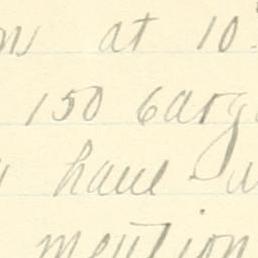 at 10
150 barg
have
mention